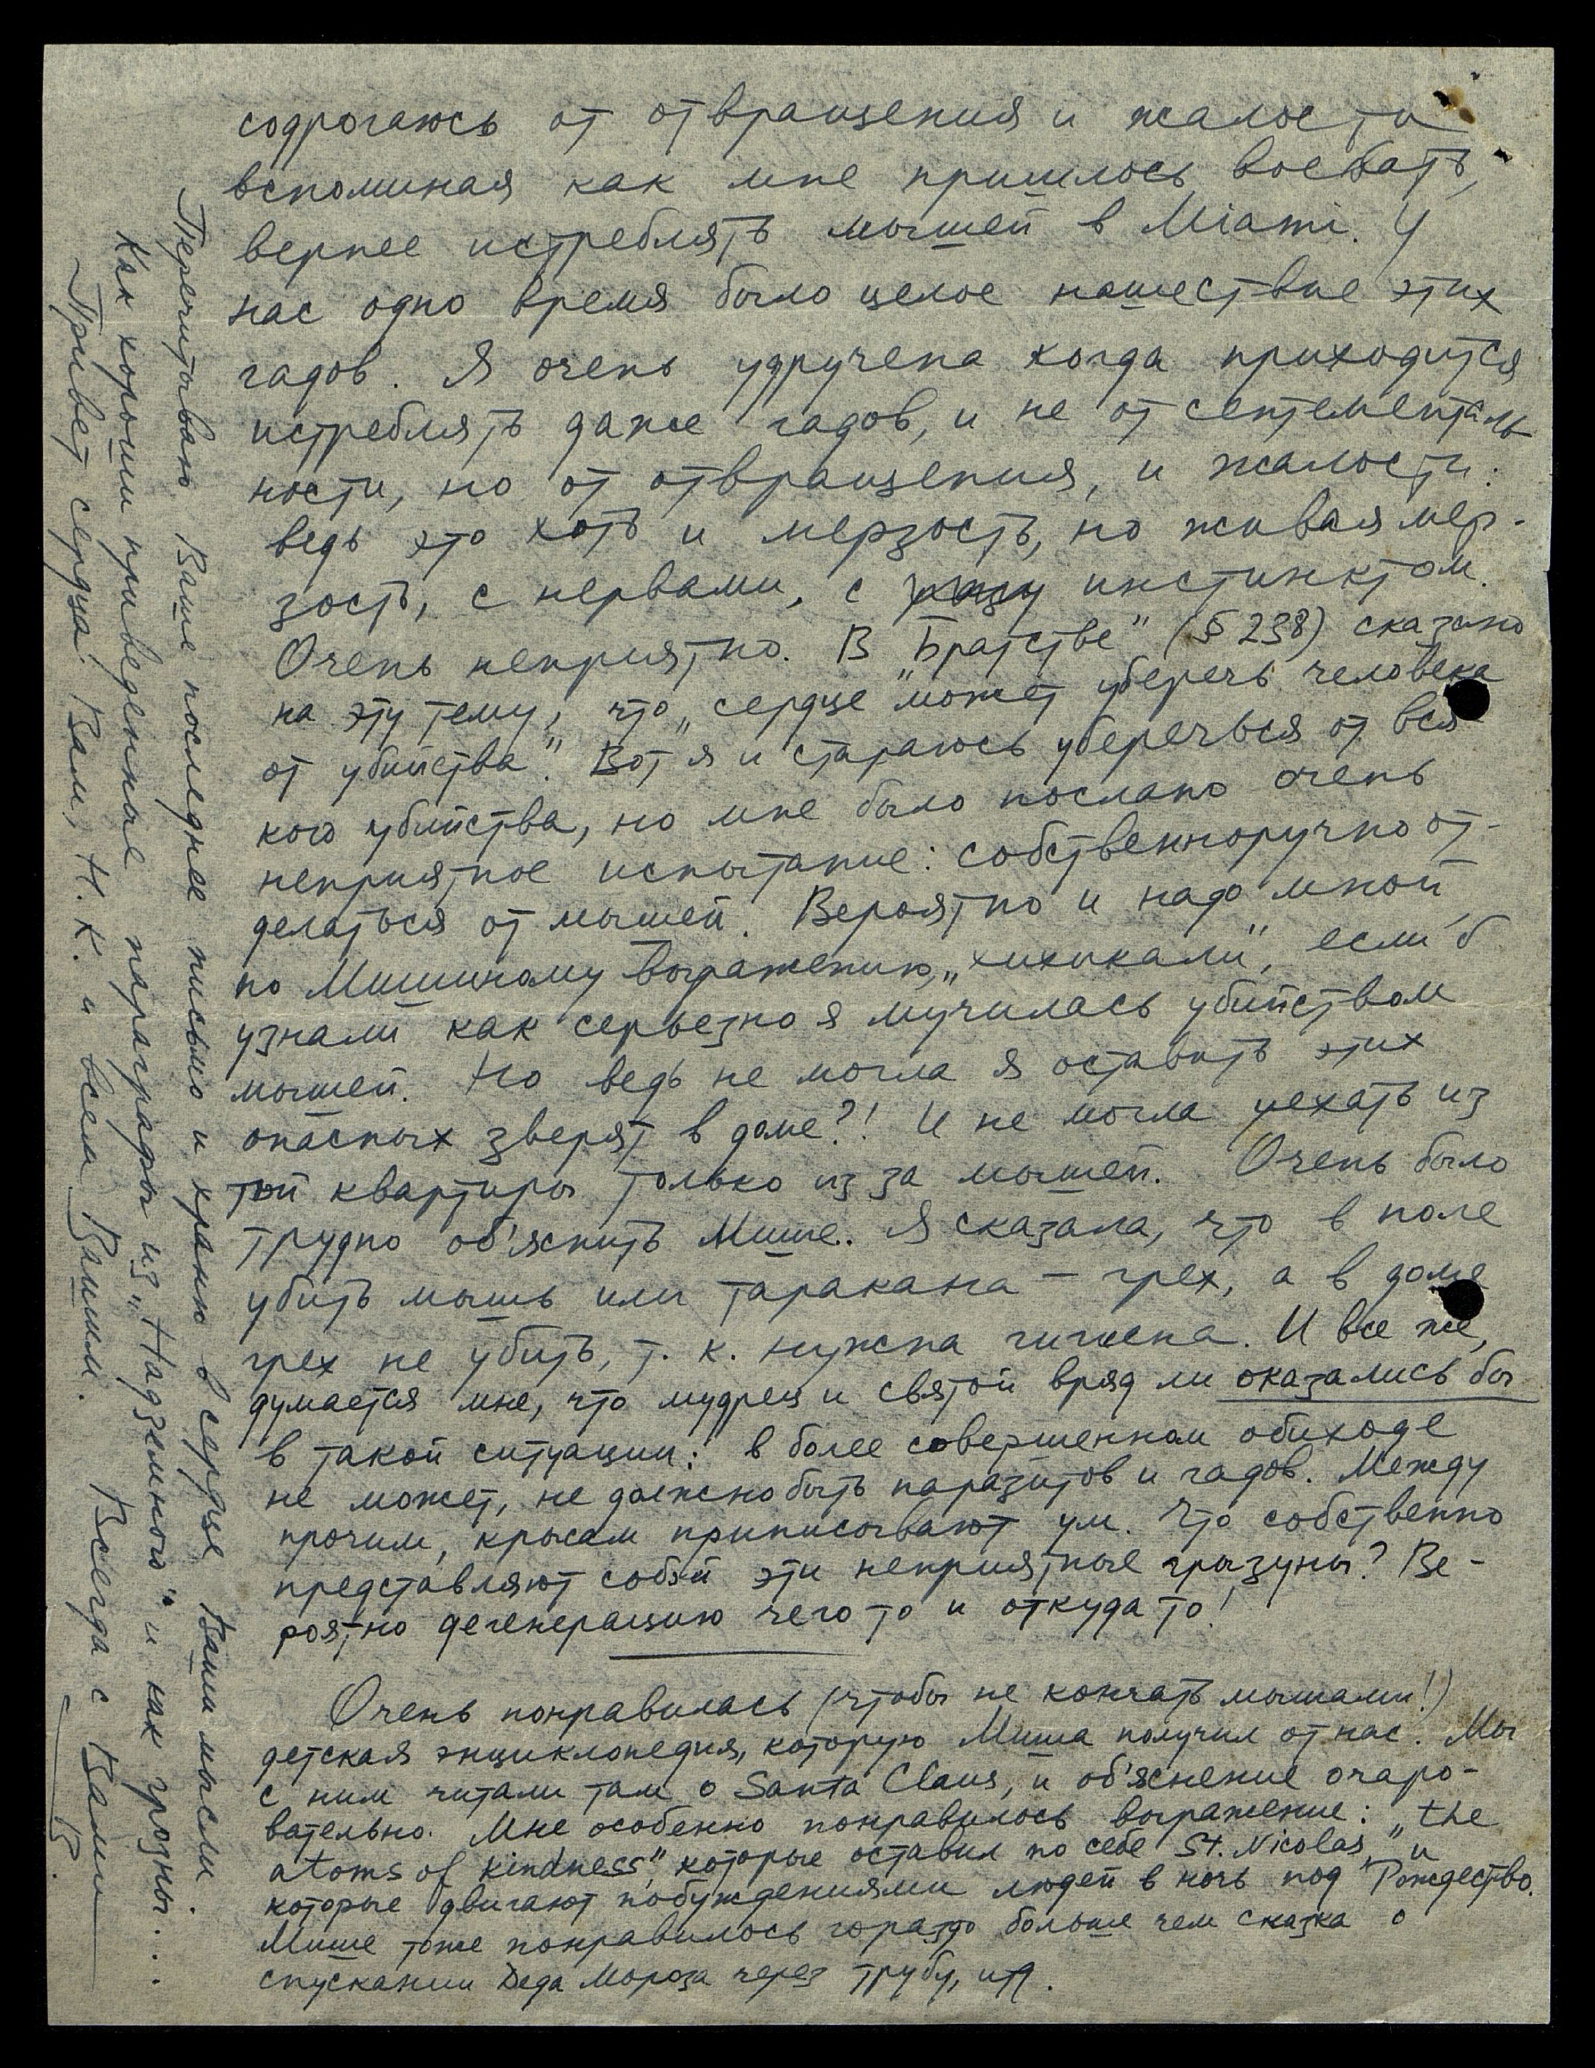 содрогаюсь от отвращения и жалости
вспоминая как мне пришлось воевать,
вернее истреблять мышей в Miami. У
нас одно время было целое нашествие этих
гадов. Я очень удручена когда приходится
истреблять даже гадов, и не от сентементаль
ности, но от отвращения, и жалости:
ведь это хоть и мерзость, но живая мер-
зость, с нервами, с инстинктом.
Очень неприятно. В „Братстве" (§ 238) сказано
на эту тему, что „сердце может уберечь человека
от убийства". Вот я и стараюсь уберечься от вся
кого убийства, но мне было послано очень
неприятное испытание: собственноручно от-
делаться от мышей. Вероятно и надо мной,
по Мишиному выражению, „хихикали", если б
узнали как серьезно я мучилась убийством
мышей. Но ведь не могла я оставить этих
опасных зверят в доме?! И не могла уехать из
той квартиры только из за мышей. Очень было
трудно об'яснить Мише.. Я сказала, что в поле
убить мышь или таракана — грех, а в доме
грех не убить, т. к. нужна гигиена. И все же,
думается мне, что мудрец и святой вряд ли оказались бы
в такой ситуации: в более совершенном обиходе
не может, не должно быть паразитов и гадов. Между
прочим, крысам приписывают ум. Что собственно
представляют собой эти неприятные грызуны? Ве-
роятно дегенерацию чего то и откуда то!
Очень понравилась (чтобы не кончать мышами!)
детская энциклопедия, которую Миша получил от нас. Мы
с ним читали там о Santa Claus, и об'яснение очаро-
вательно. Мне особенно понравилось выражение: „the
atoms of kindness", которые оставил по себе St. Nicolas, и
которые двигают побуждениями людей в ночь под Рождество.
Мише тоже понравилось гораздо больше чем сказка о
спускании Деда Мороза через трубу, итд.
Перечитываю Ваше последнее письмо и храню в сердце Ваши мысли.
Как хороши приведенные параграфы из „Надземного" и как грозны...
Привет сердца Вам, Н. К. и всем Вашим. Всегда с Вами
В.